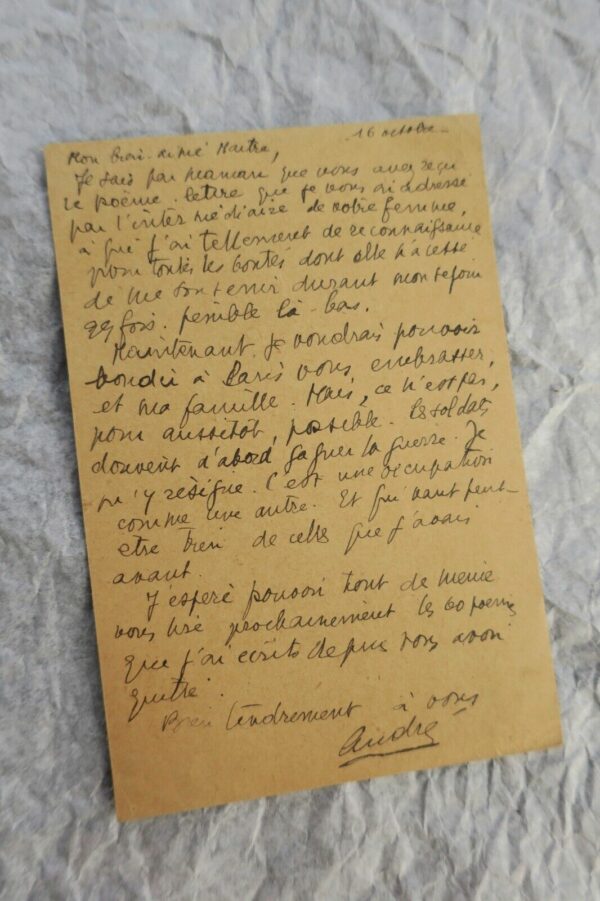 16 octobre
Mon bien-aimé Maître,
Je sais par maman que vous avez reçu
le poème-lettre que je vous ai adressé
par l'intermédiaire de votre femme,
à qui j'ai tellement de reconnaissance
pour toutes les bontés dont elle n'a cessé
de me soutenir durant mon séjour
qqfois pénible là-bas.
Maintenant je voudrais pouvoir
bondir à Paris vous embrasser,
et ma famille. Mais, ce n'est pas,
pour aussitôt, possible. Les soldats
doivent d'abord gagner la guerre. Je
m'y résigne. C'est une occupation
comme une autre. Et qui vaut peut-
etre bien de celles que j'avais
avant.
J'espère pouvoir tout de même
vous lire prochainement les 60 poèmes
que j'ai écrits depuis vous avoir
quitté.
Bien tendrement à vous
André